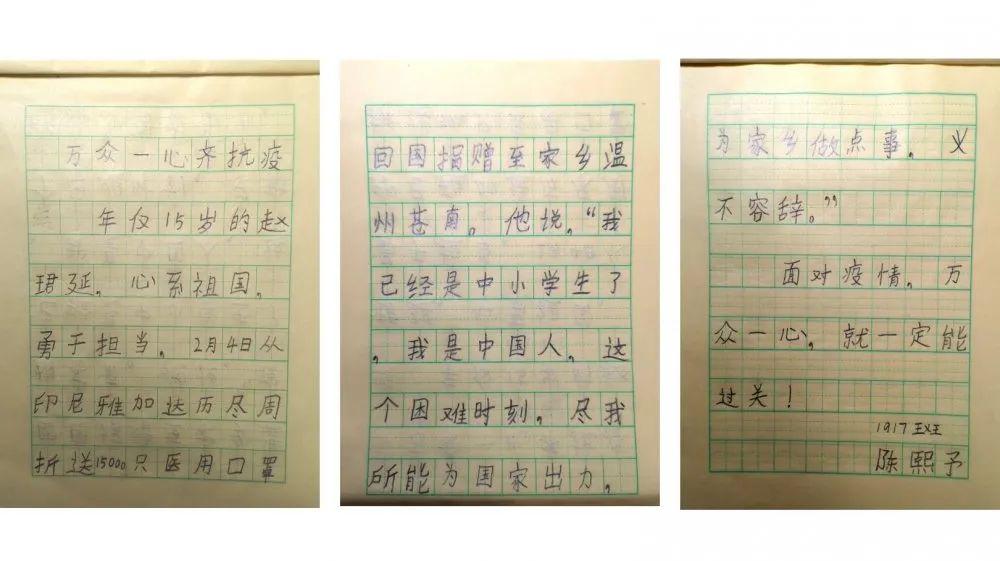 万众一心齐抗疫
年仅15岁的赵
珺延。心系祖国，
勇于担当。2月4日从
印尼雅加达历尽周
折送15000只医用口罩
回国捐赠至家乡温
州苍南。他说，“我
已经是中小学生了
，我是中国人，这
个困难时刻，尽我
所能为国家出力，
为家乡做点事，义
不容辞。”
面对疫情，万
众一心，就一定能
过关！
1917班
陈熙予